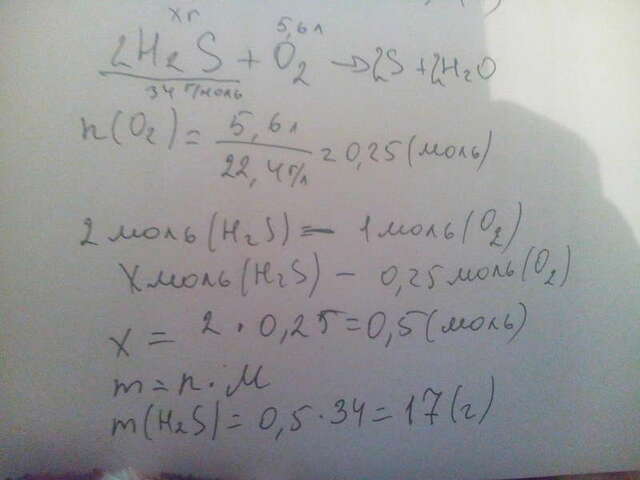 xг 5,6л
2H2S + O2 → 2S + 2H2O
34 г/моль
n(O2) = 5,6л / 22,4г/л = 0,25 (моль)
2 моль (H2S) – 1 моль (O2)
X моль (H2S) – 0,25 моль (O2)
x = 2 · 0,25 = 0,5 (моль)
m = n · M
m(H2S) = 0,5 · 34 = 17 (г)